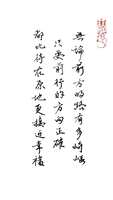 无论前方的路有多崎岖
只要前行的方向正确
都比待在原地更接近幸福